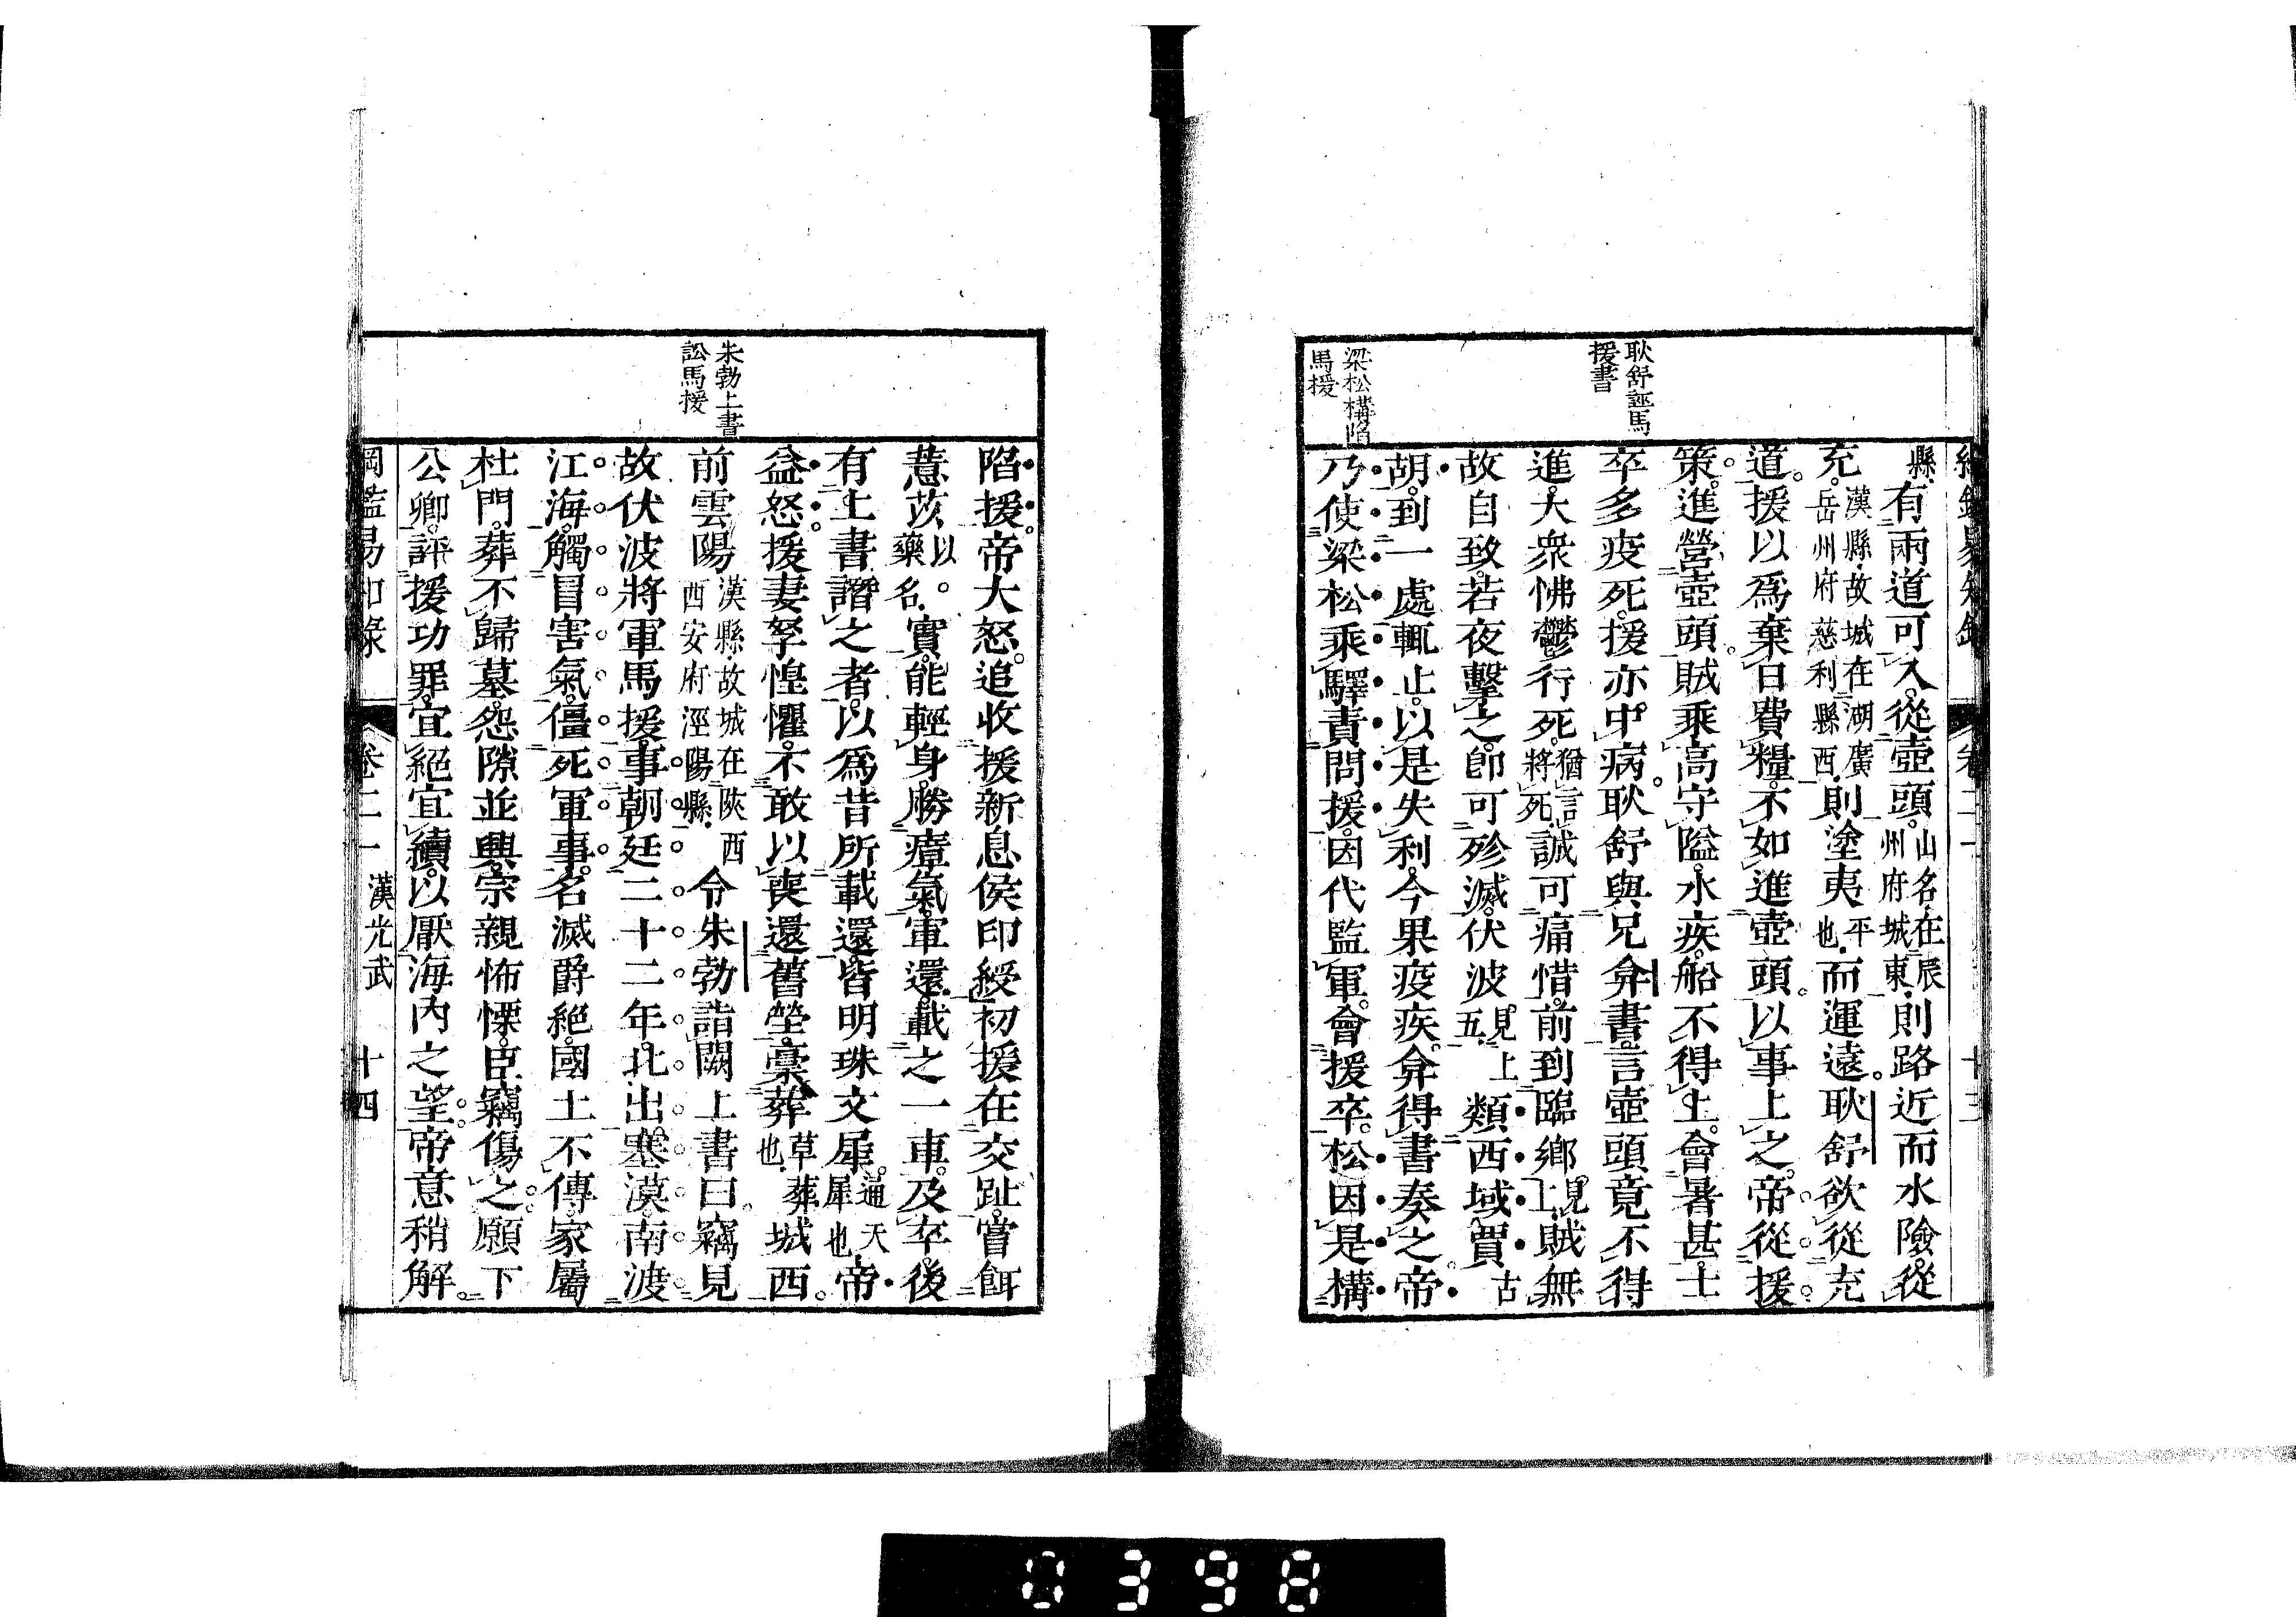 耿舒誣馬
援書
梁松構陷
馬援
縣有兩道可入從壺頭山名在辰州府城東則路近而水險從
充漢縣故城在湖廣岳州府慈利縣西則塗夷平也而運遠耿舒欲從充
道援以為棄日費糧不如進壺頭以事上之帝從援
策進營壺頭賊乘高守隘水疾船不得上會暑甚士
卒多疫死援亦中病耿舒與兄弇書言壺頭竟不得
進大衆怫鬱行死猶言將死誠可痛惜前到臨鄉見上賊無
故自致若夜擊之即可殄滅伏波見上五類西域賈古
胡到一處輒止以是失利今果疫疾弇得書奏之帝
乃使梁松乘驛責問援因代監軍會援卒松因是構
朱勃上書
訟馬援
陷援帝大怒追收援新息侯印綬初援在交趾嘗餌
薏苡以藥名實能輕身勝瘴氣軍還載之一車及卒後
有上書譖之者以為昔所載還皆明珠文犀通天犀也帝
益怒援妻孥惶懼不敢以喪還舊塋稾葬草葬也城西
前雲陽漢縣故城在陝西西安府涇陽縣令朱勃詣闕上書曰竊見
故伏波將軍馬援事朝廷二十二年北出塞漠南渡
江海觸冒害氣僵死軍事名滅爵絕國土不傳家屬
杜門葬不歸墓怨隙並興宗親怖慄臣竊傷之願下
公卿評援功罪宜絕宜續以厭海內之望帝意稍解
綱鑑易知錄 卷二十一 漢光武 十四
0398